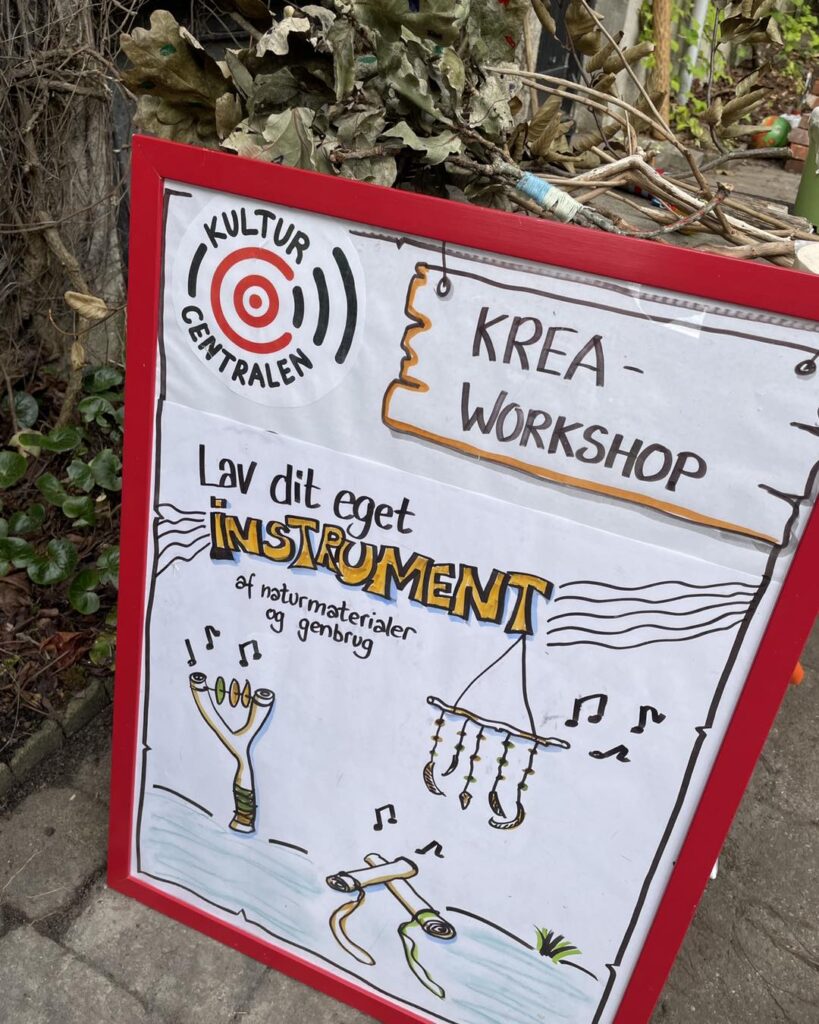 KULTUR
CENTRALEN
KREA-
WORKSHOP
Lav dit eget
INSTRUMENT
af naturmaterialer
og genbrug